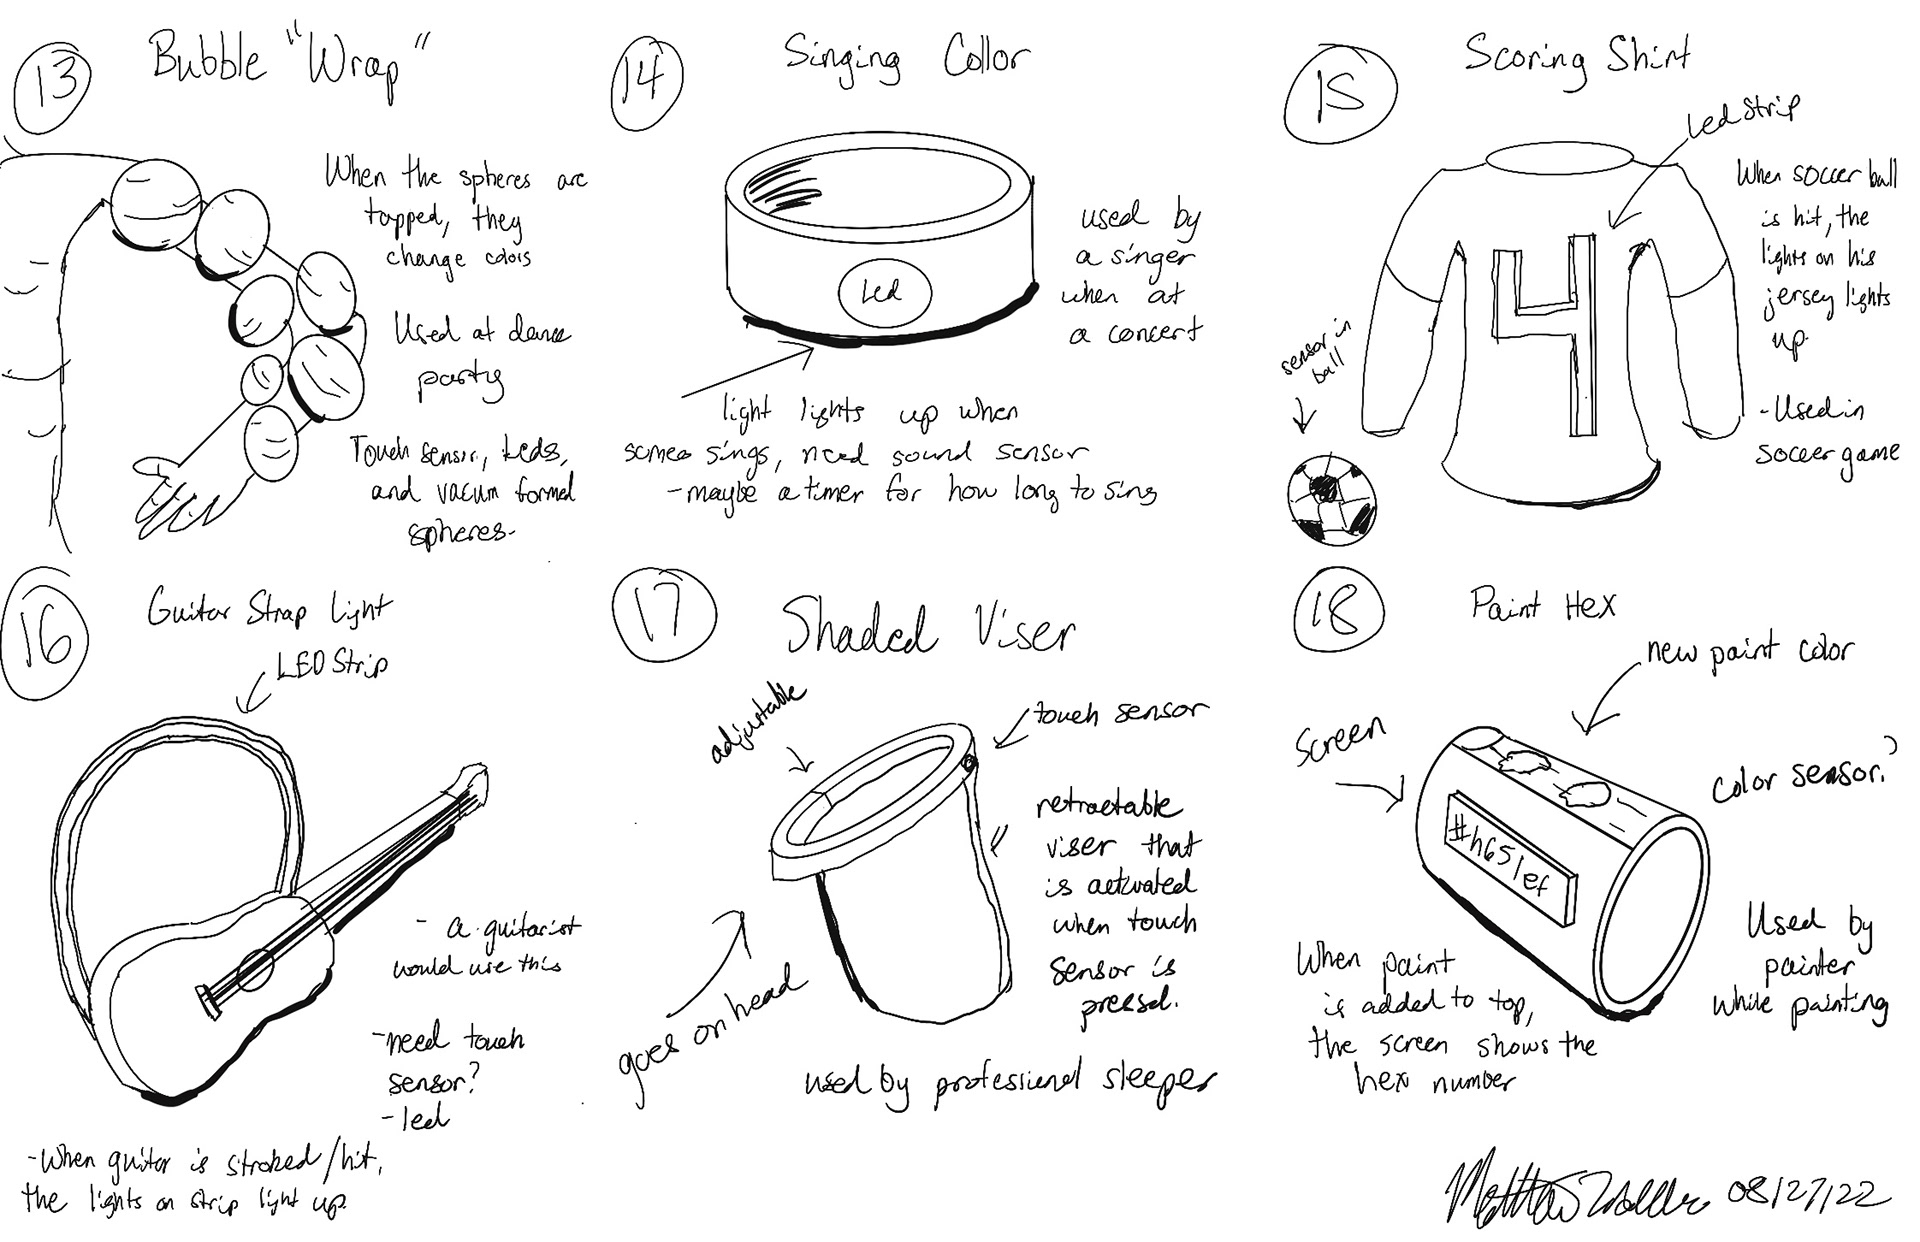 13
Bubble "Wrap"
When the spheres are
tapped, they
change colors
Used at dance
party
Touch sensor, Leds,
and vacum formed
spheres-
14
Singing Collor
Led
used by
a singer
when at
a concert
light lights up when
somes sings, need sound sensor
-maybe a timer for how long to sing
15
Scoring Shirt
Led Strip
4
When soccer ball
is hit, the
lights on his
jersey lights
up.
-Used in
soccer game
sensor in
ball
16
Guitar Strap Light
LED Strip
- a guitarist
would use this
-need touch
sensor?
-led
-When guitar is stroked/hit,
the lights on strip light up.
17
Shaded Viser
adjustable
touch sensor
retractable
viser that
is activated
when touch
sensor is
pressd.
goes on head
used by professional sleeper
18
Paint Hex
new paint color
Screen
color sensor?
#h651ef
When paint
is added to top,
the screen shows the
hex number
Used by
painter
while painting
08/27/22